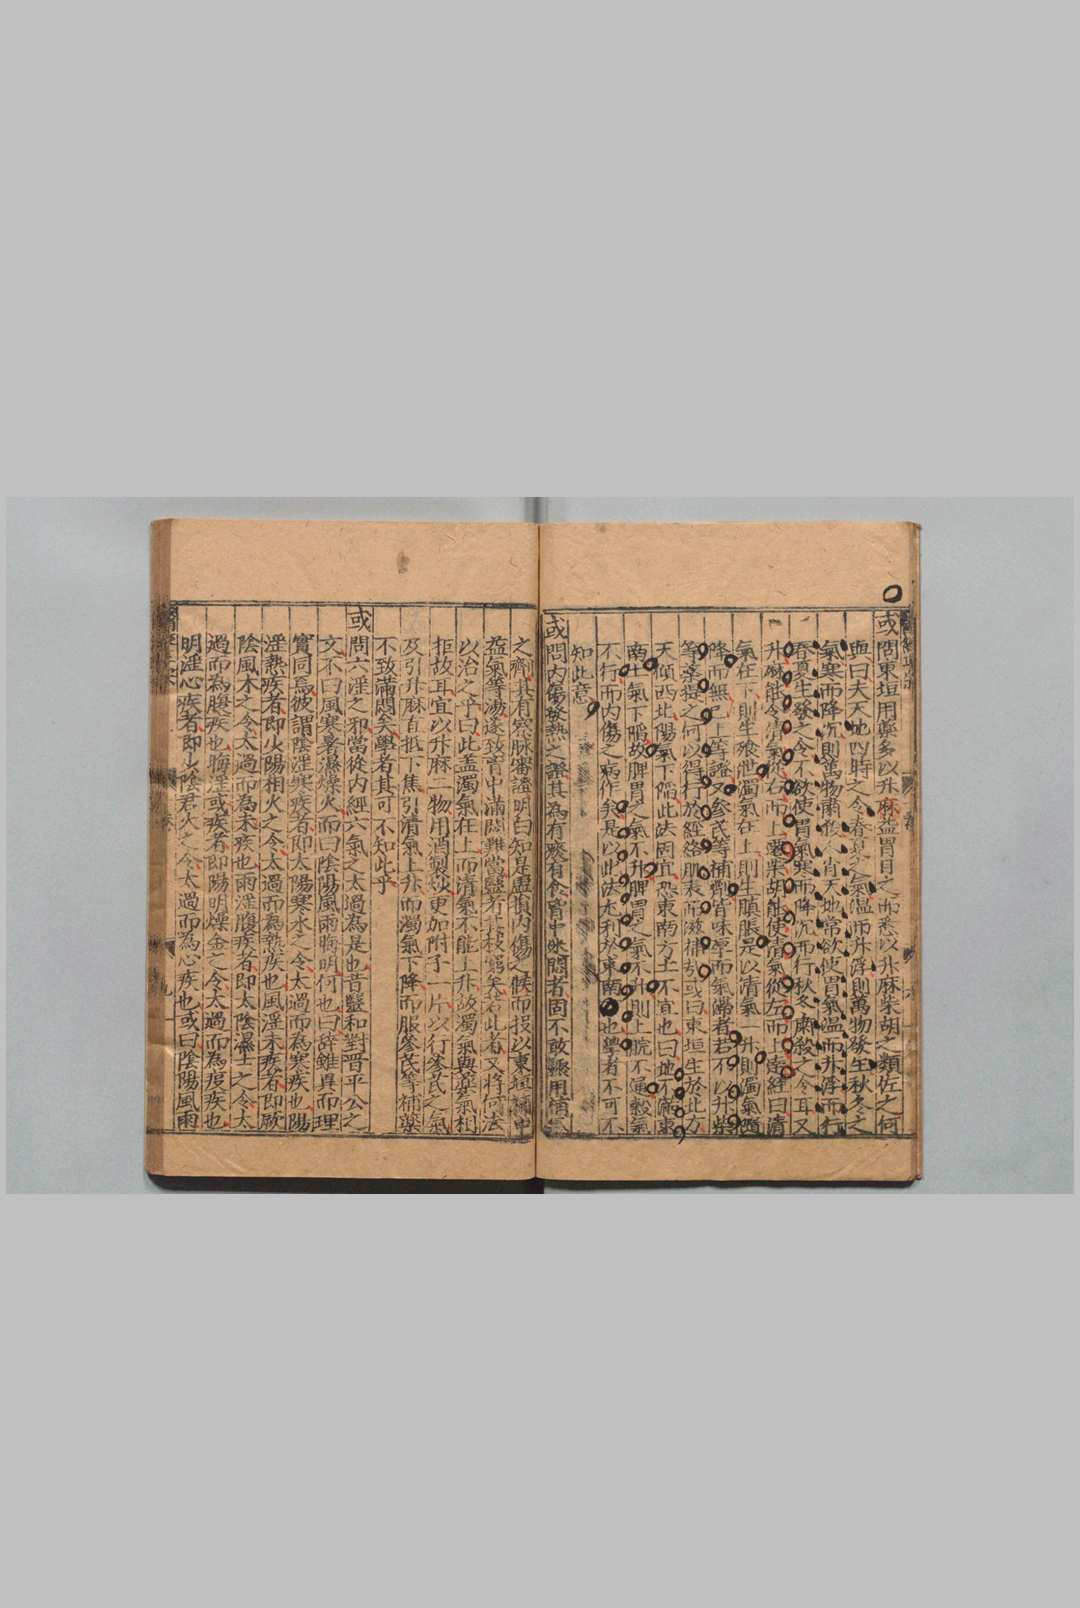 或問東垣用藥多以升麻蓋胃目之而悉以升麻柴胡之類佐之何
與曰夫天地四時之令春夏之氣溫而升浮則萬物發生秋冬之
氣寒而降沉則萬物肅殺人肖天地常欲使胃氣溫而升浮而行
春夏生發之令不欲使胃氣寒而降沉而行秋冬肅殺之令耳又
升麻能令清氣從右而上達柴胡能使清氣從左而上達經曰清
氣在下則生飱泄濁氣在上則生䐜脹是以清氣一升則濁氣隨
降而無已上等證又參芪等補劑皆味厚而氣滯者若不以升柴
等藥提之何以得行於經絡肌表而滋補哉或曰東垣生於北方
天傾西北陽氣下陷此法固宜恐東南方土不宜也曰地不滿東
南土氣下陷故脾胃之氣不升脾胃之氣不升則上脘不通穀氣
不行而內傷之病作矣是以此法尤利於東南也學者不可不
知此意
或問內傷發熱之證其為有痰有食胷中迷悶者固不敢驟用補
之劑其有察脈審證明白知是虛損內傷之候而投以東垣補中
益氣等湯遂致胷中滿悶難當醫者技窮矣若此者又將何法
以治之乎曰此蓋濁氣在上而清氣不能上升故濁氣與藥氣相
拒故耳宜以升麻一物用酒製炒更加附子一片以行參芪之氣
及引升麻直抵下焦引清氣上升而濁氣下降而服參芪等補藥
不致滿悶矣學者其可不知此乎
或問六淫之邪當從內經六氣之太過為是也昔醫和對晉平公之
文不曰風寒暑濕燥火而曰陰陽風雨晦明何也曰辭雖異而理
實同焉彼謂陰淫寒疾者即太陽寒水之令太過而為寒疾也陽
淫熱疾者即少陽相火之令太過而為熱疾也風淫末疾者即厥
陰風木之令太過而為末疾也雨淫腹疾者即太陰濕土之令太
過而為腹疾也晦淫或疾者即陽明燥金之令太過而為疾也
明淫心疾者即少陰君火之令太過而為心疾也或曰陰陽風雨